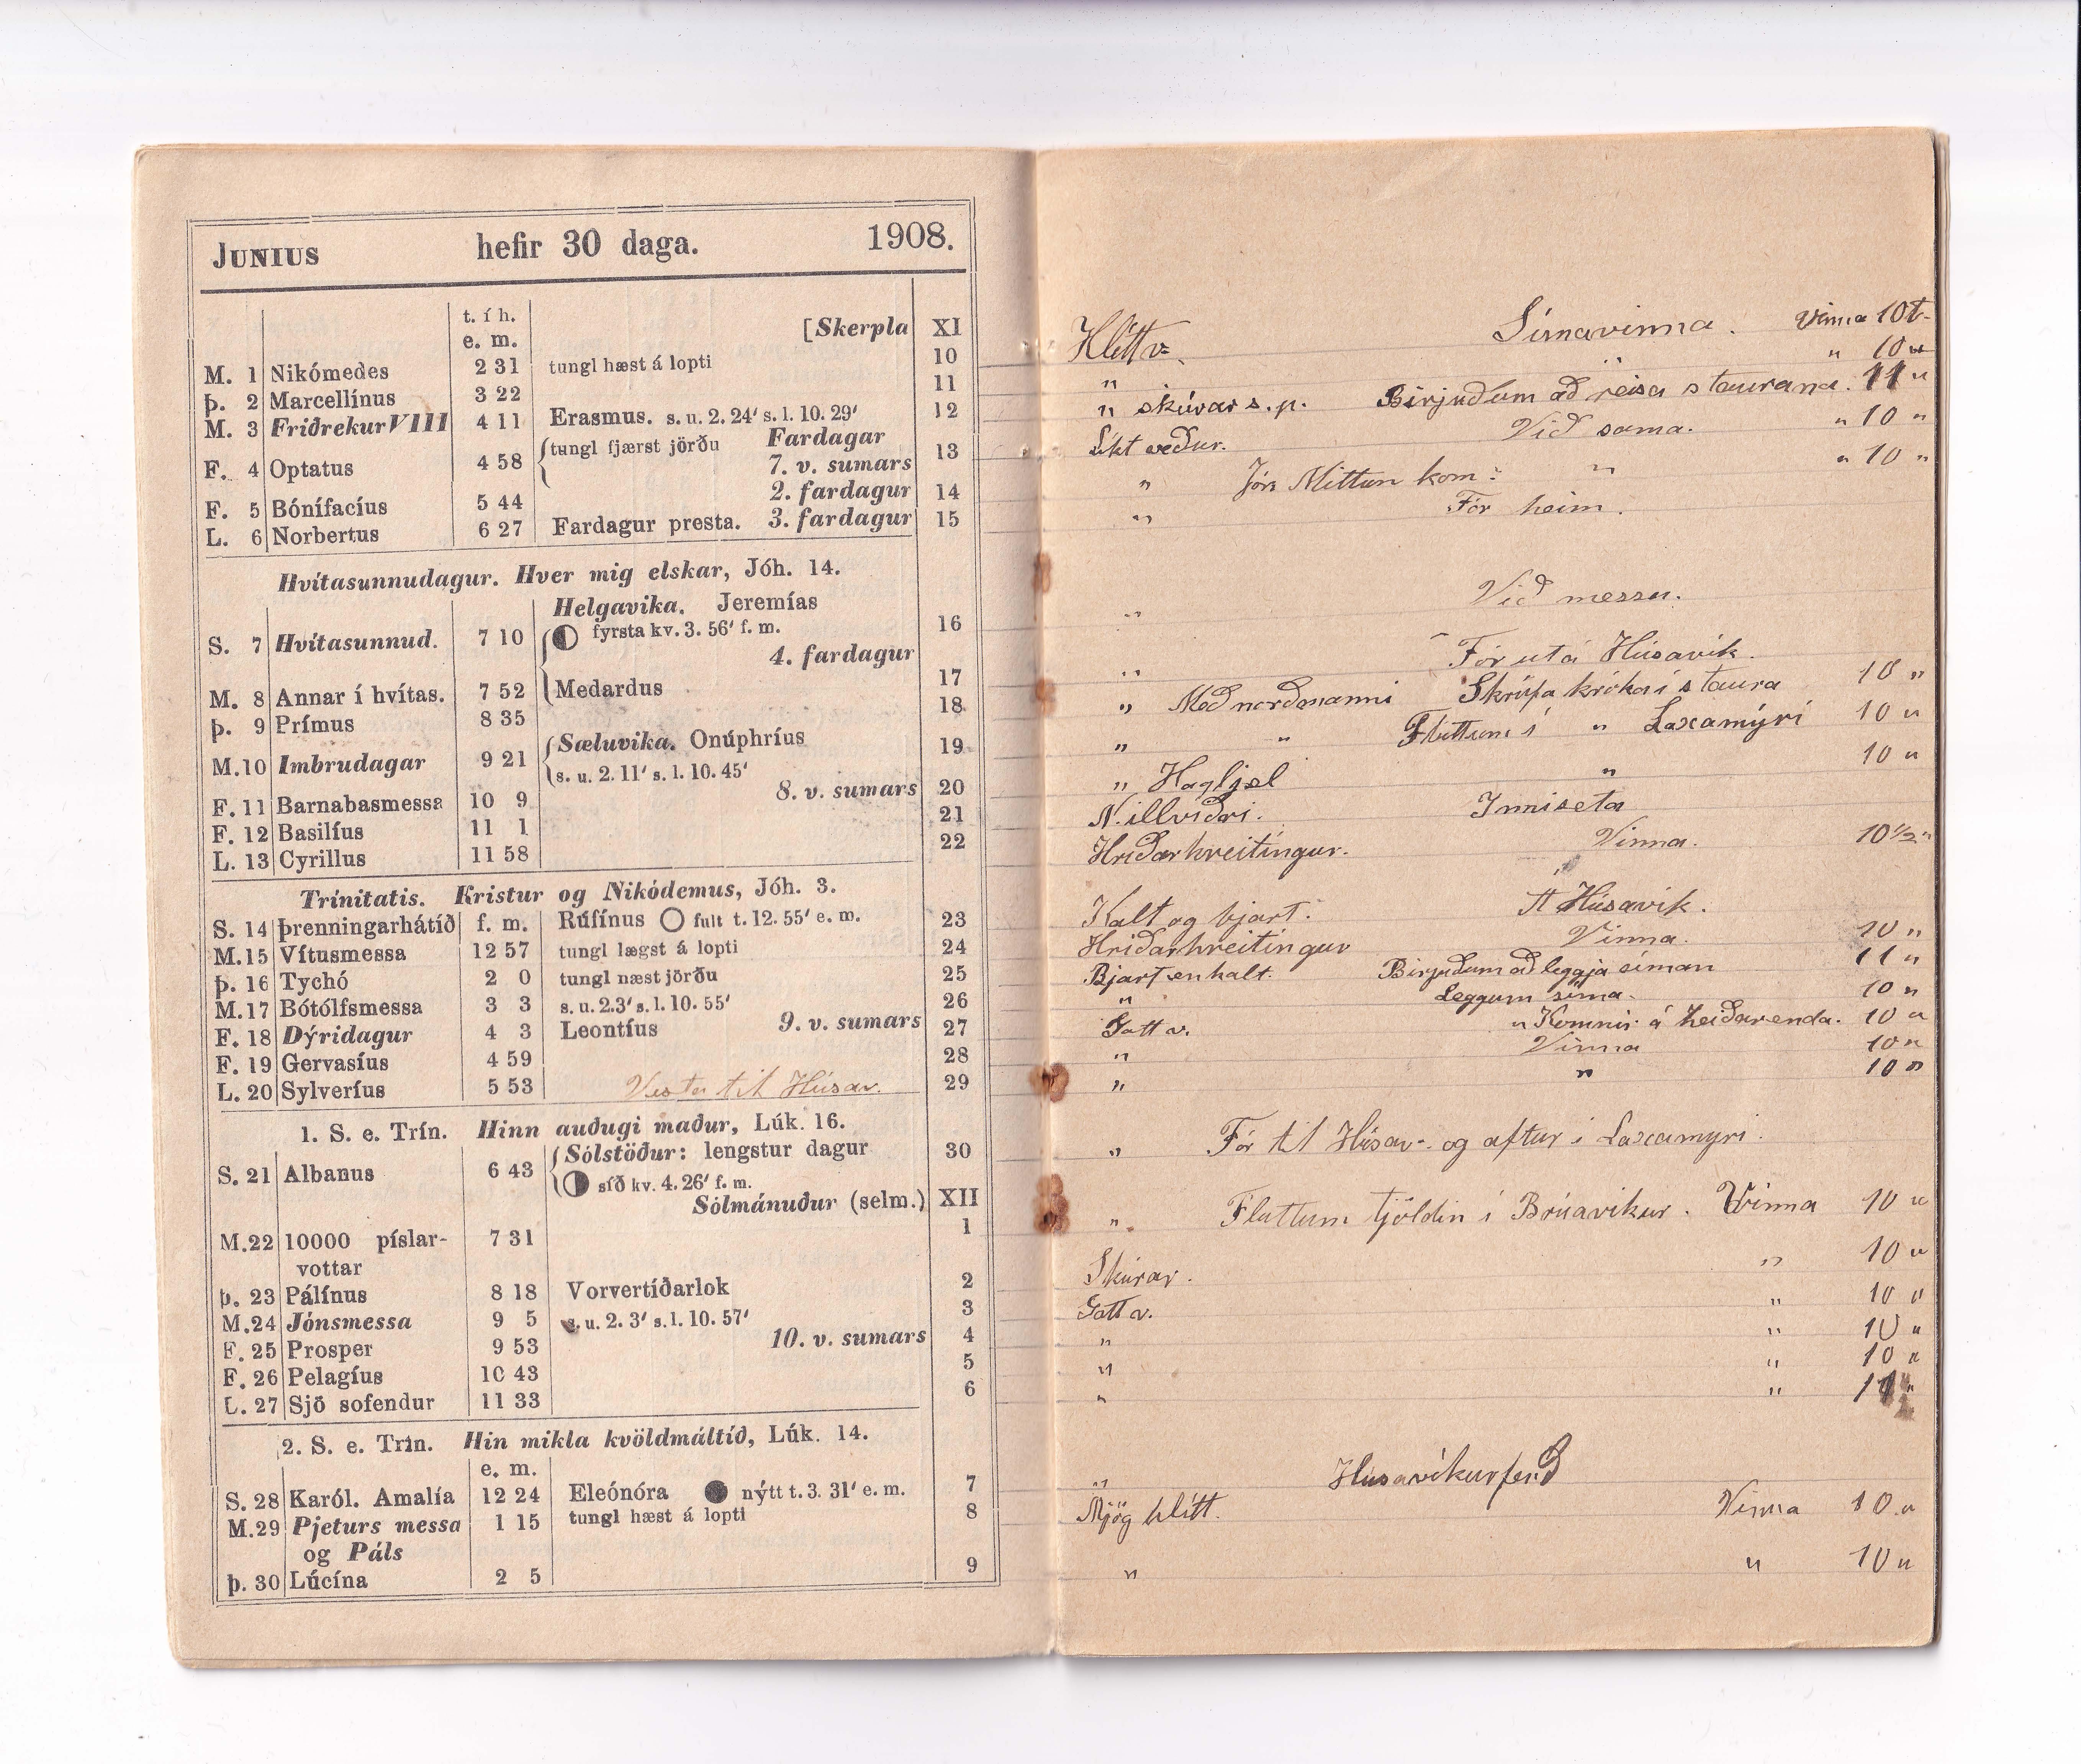 JUNIUS hefir 30 daga. 1908.
t. í h. [Skerpla XI
e. m. 10
M. 1 Nikómedes 2 31 tungl hæst á lopti
11
Þ. 2 Marcellínus 3 22
M. 3 Friðrekur VIII 4 11 Erasmus. s. u. 2. 24′ s. l. 10. 29′ 12
tungl fjærst jörðu Fardagar
F. 4 Optatus 4 58 7. v. sumars 13
2. fardagur 14
F. 5 Bónífacíus 5 44
L. 6 Norbertus 6 27 Fardagur presta. 3. fardagur 15
Hvítasunnudagur. Hver mig elskar, Jóh. 14.
Helgavika. Jeremías
S. 7 Hvítasunnud. 7 10 fyrsta kv. 3. 56′ f. m. 16
4. fardagur
M. 8 Annar í hvítas. 7 52 Medardus 17
Þ. 9 Prímus 8 35 18
Sæluvika. Onúphríus
M. 10 Imbrudagar 9 21 19
s. u. 2. 11′ s. l. 10. 45′
8. v. sumars 20
F. 11 Barnabasmessa 10 9
F. 12 Basilíus 11 1 21
L. 13 Cyrillus 11 58 22
Trínitatis. Kristur og Nikódemus, Jóh. 3.
S. 14 Þrenningarhátíð f. m. Rúfínus fult t. 12. 55′ e. m. 23
M. 15 Vítusmessa 12 57 tungl lægst á lopti 24
Þ. 16 Tychó 2 0 tungl næst jörðu 25
M. 17 Bótólfsmessa 3 3 s. u. 2. 3′ s. l. 10. 55′ 26
F. 18 Dýridagur 4 3 Leontíus 9. v. sumars 27
F. 19 Gervasíus 4 59 28
L. 20 Sylveríus 5 53 til Húsav. 29
1. S. e. Trín. Hinn auðugi maður, Lúk. 16.
Sólstöður: lengstur dagur
S. 21 Albanus 6 43 30
síð kv. 4. 26′ f. m.
Sólmánuður (selm.) XII
1
M. 22 10000 píslar- 7 31
vottar
Þ. 23 Pálínus 8 18 Vorvertíðarlok 2
M. 24 Jónsmessa 9 5 s. u. 2. 3′ s. l. 10. 57′ 3
F. 25 Prosper 9 53 10. v. sumars 4
F. 26 Pelagíus 10 43 5
L. 27 Sjö sofendur 11 33 6
2. S. e. Trín. Hin mikla kvöldmáltíð, Lúk. 14.
e. m.
S. 28 Karól. Amalía 12 24 Eleónóra nýtt t. 3. 31′ e. m. 7
M. 29 Pjeturs messa 1 15 tungl hæst á lopti 8
og Páls
Þ. 30 Lúcína 2 5 9
Hlítt v. Símavinna. Vinna 10t.
" " 10 "
" skúrar s.p. Birjuðum að reisa staurana. 11 "
Líkt veður. Við sama. " 10 "
" Jón kom: " " 10 "
" Fór heim.
" Við messu.
" Fór út á Húsavík.
" Með norðmanni Skrúfa króka í staura 10 "
" " Fluttum í " Laxamýri 10 "
" Hagljel " 10 "
N. illviðri. Inniseta
Hríðarhreitingur. Vinna. 10 ½ "
Kalt og bjart. Á Húsavík.
Hríðarhreitingur Vinna. 10 "
Bjart en kalt. Birjuðum að leggja síman 11 "
" Leggum síma. 10 "
Gott v. " Komnir á heiðarenda. 10 "
" Vinna 10 "
" " 10 "
" Fór til Húsav. og aftur í Laxamyri.
" Fluttum tjöldin í Brúavikur. Vinna 10 "
Skúrar. " 10 "
Gott v. " 10 "
" " 10 "
" " 10 "
" " 11 "
" Húsavíkurferð
Mjög hlítt. Vinna 10 "
" " 10 "